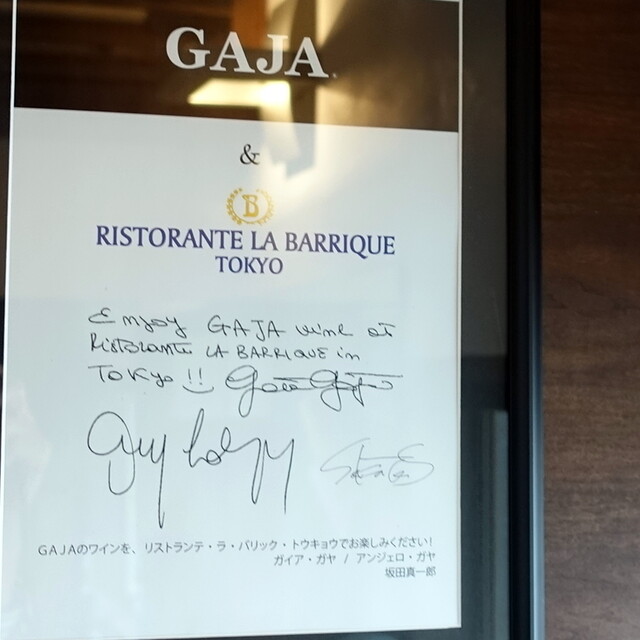 GAJA
&
B
RISTORANTE LA BARRIQUE
TOKYO
Enjoy GAJA wine at
Ristorante LA BARRIQUE in
TOKYO !! Gaia Gaja
GAJAのワインを、リストランテ・ラ・バリック・トウキョウでお楽しみください!
ガイア・ガヤ / アンジェロ・ガヤ
坂田真一郎